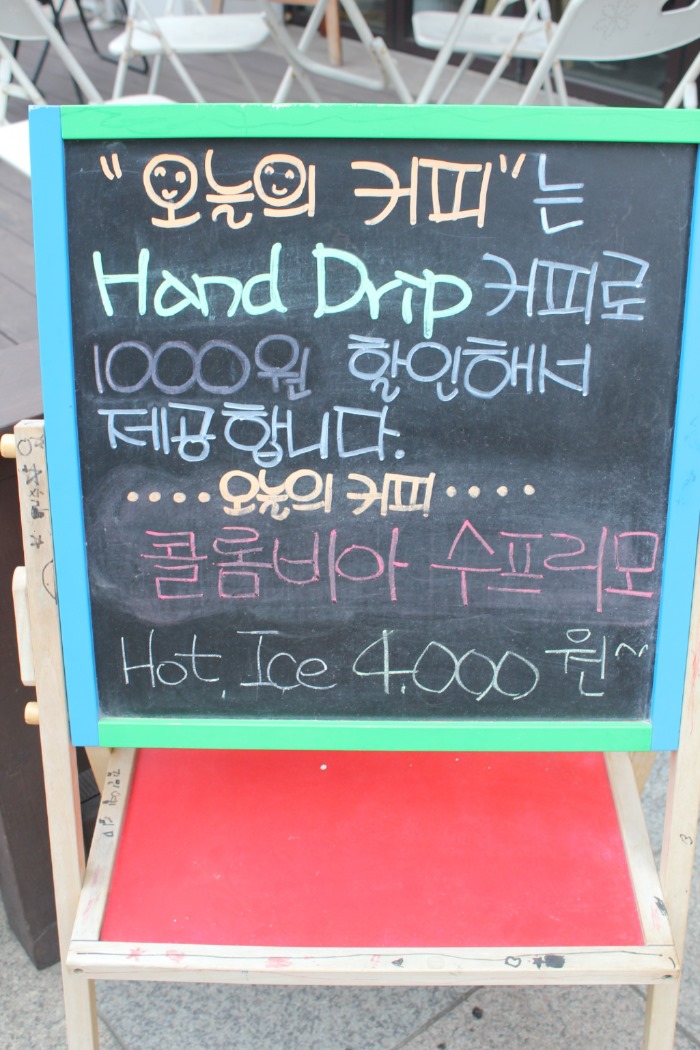 "오늘의 커피"는
Hand Drip 커피로
1000원 할인해서
제공합니다.
····오늘의 커피····
콜롬비아 수프리모
Hot, Ice 4,000원~